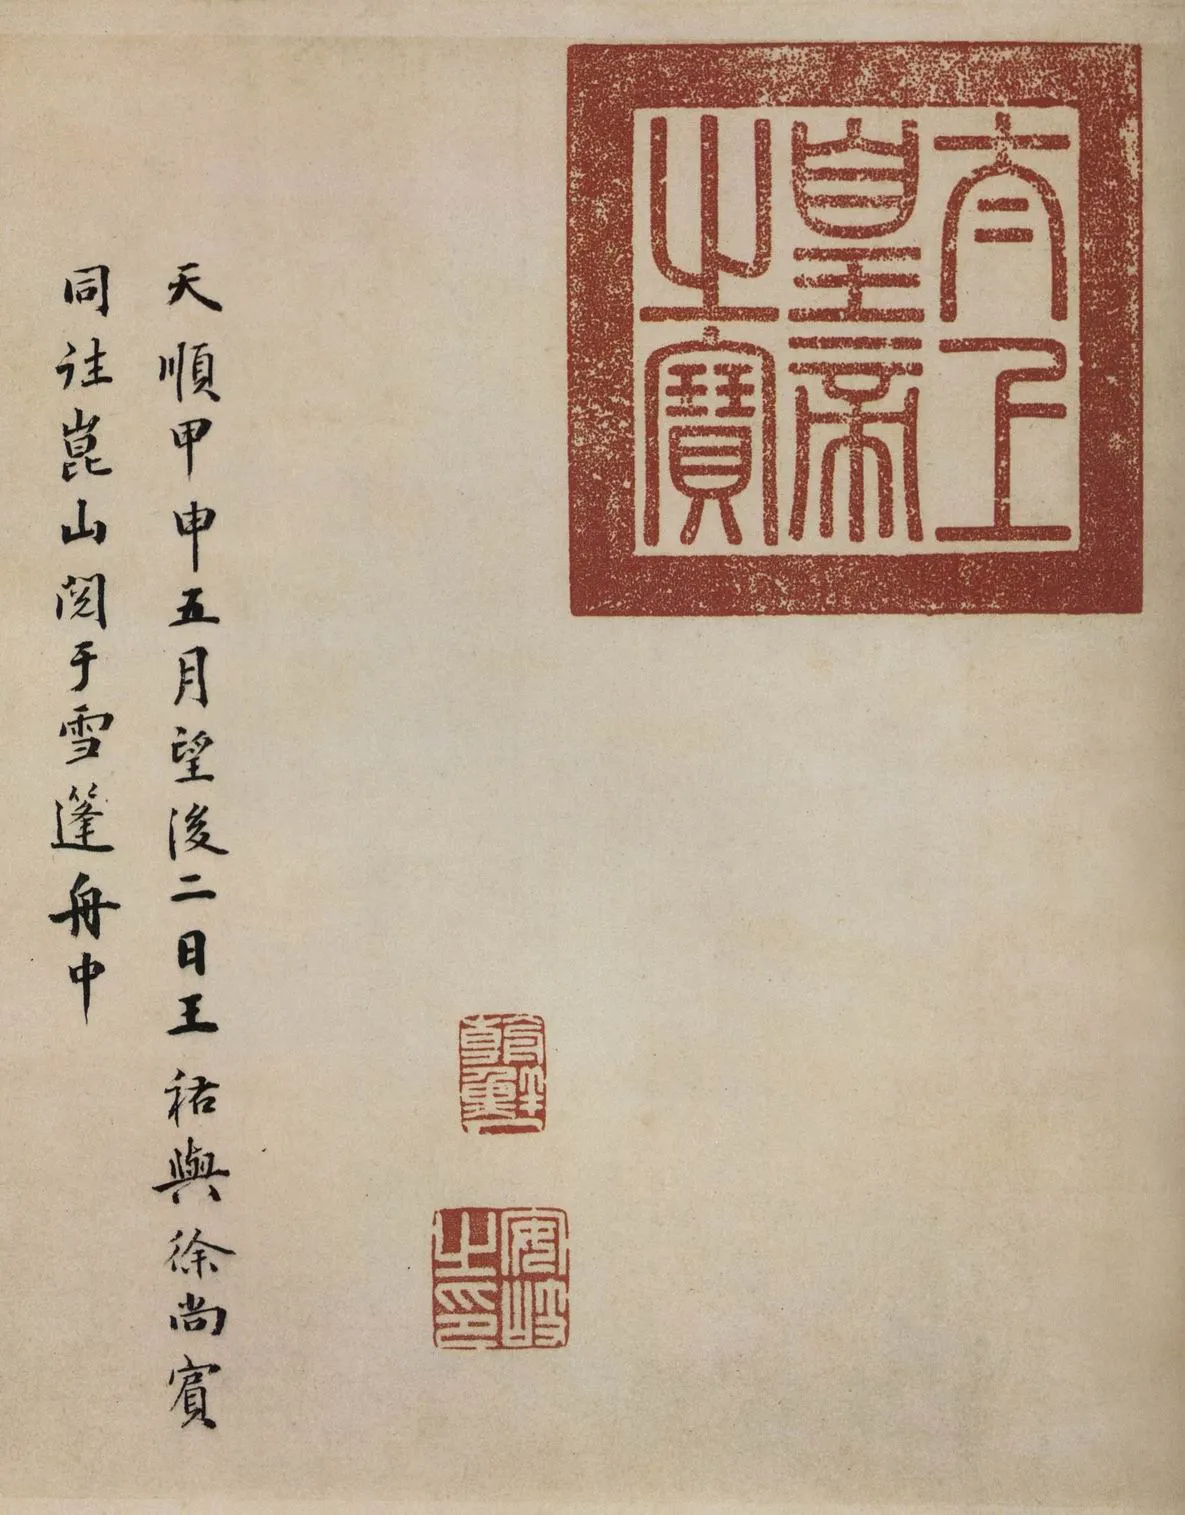 太上
皇帝
之寶
天順甲申五月望後二日王祐與徐尚賓
同往崑山閱于雪篷舟中
安岐
之印